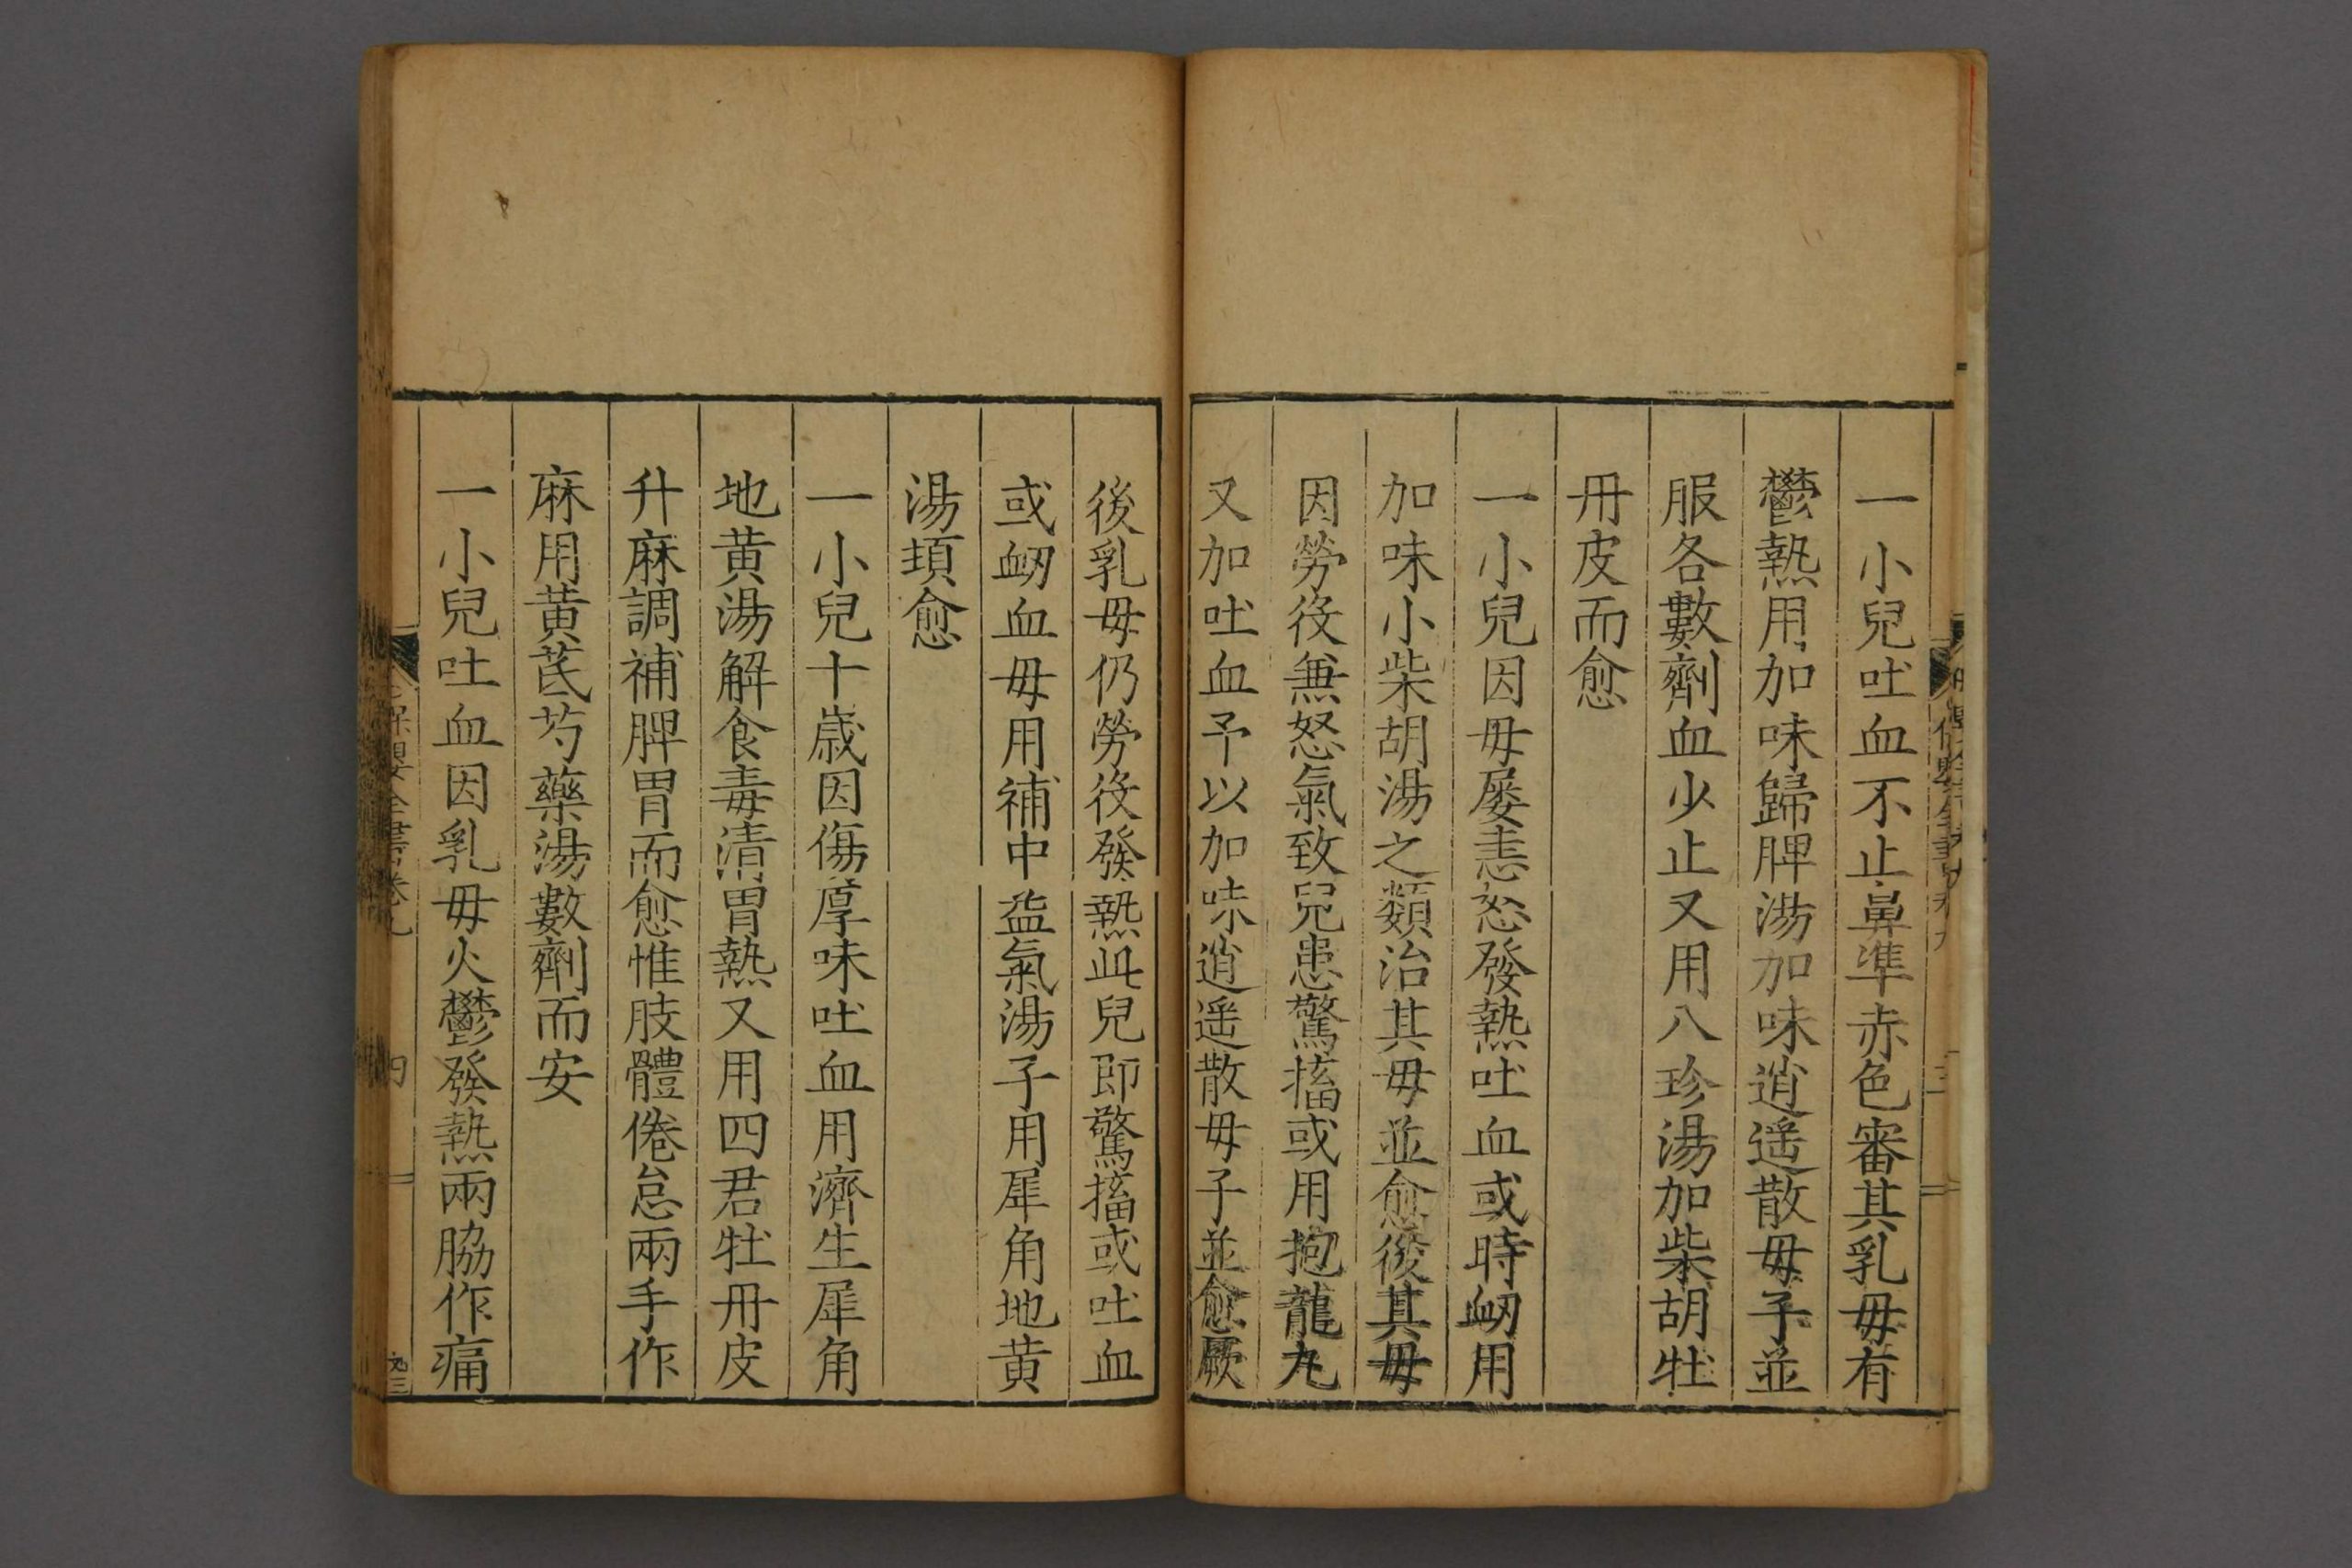 一小兒吐血不止鼻準赤色審其乳母有
鬱熱用加味歸脾湯加味逍遥散母子並
服各數劑血少止又用八珍湯加柴胡牡
丹皮而愈
一小兒因母屡恚怒發熱吐血或時衂用
加味小柴胡湯之類治其母並愈後其母
因勞役兼怒氣致兒患驚搐或用抱龍丸
又加吐血予以加味逍遥散母子並愈厥
後乳母仍勞役發熱此兒即驚搐或吐血
或衂血母用補中益氣湯子用犀角地黄
湯頃愈
一小兒十歳因傷厚味吐血用濟生犀角
地黄湯解食毒清胃熱又用四君牡丹皮
升麻調補脾胃而愈惟肢體倦怠兩手作
麻用黄芪芍藥湯數劑而安
一小兒吐血因乳母火鬱發熱兩脇作痛
保嬰全書卷九
四